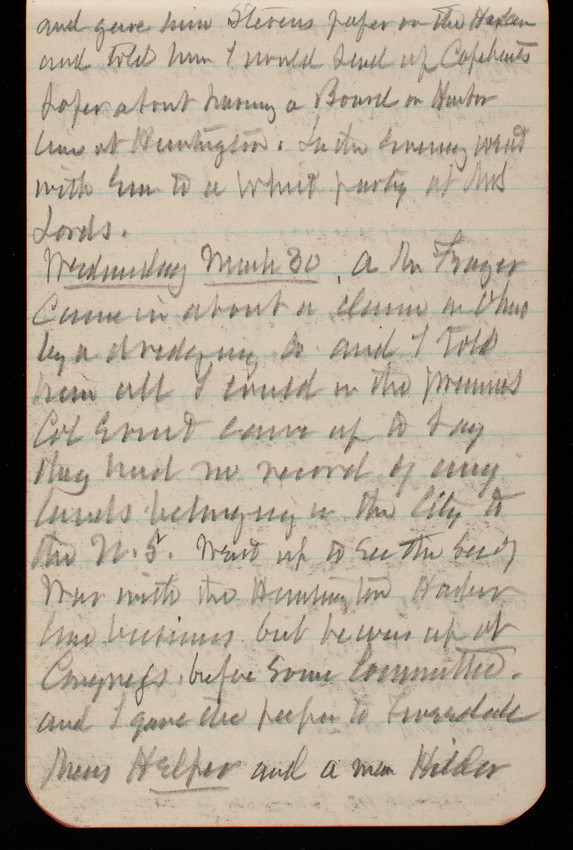 and gave him Stevens paper on the Harlem
and told him I would send up
paper about having a Board on Harbor
line at Huntington. In the Evening went
with Em to a Whist party at Mrs
Lords.
Wednesday March 30, a Mr Frazer
Came in about a claim on Ohio
by a dredging Co and I told
him all I could in the premises
Col Ernst came up to say
they had no record of any
lands belonging in the City to
the U.S. Went up to see the Secy
War with the Huntington Harbor
line business but he was up at
Congress before some Committee.
and I gave the paper to Tweedale
Helper and a man